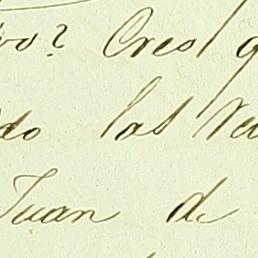 vo? Creo q
do las Ve
Juan de